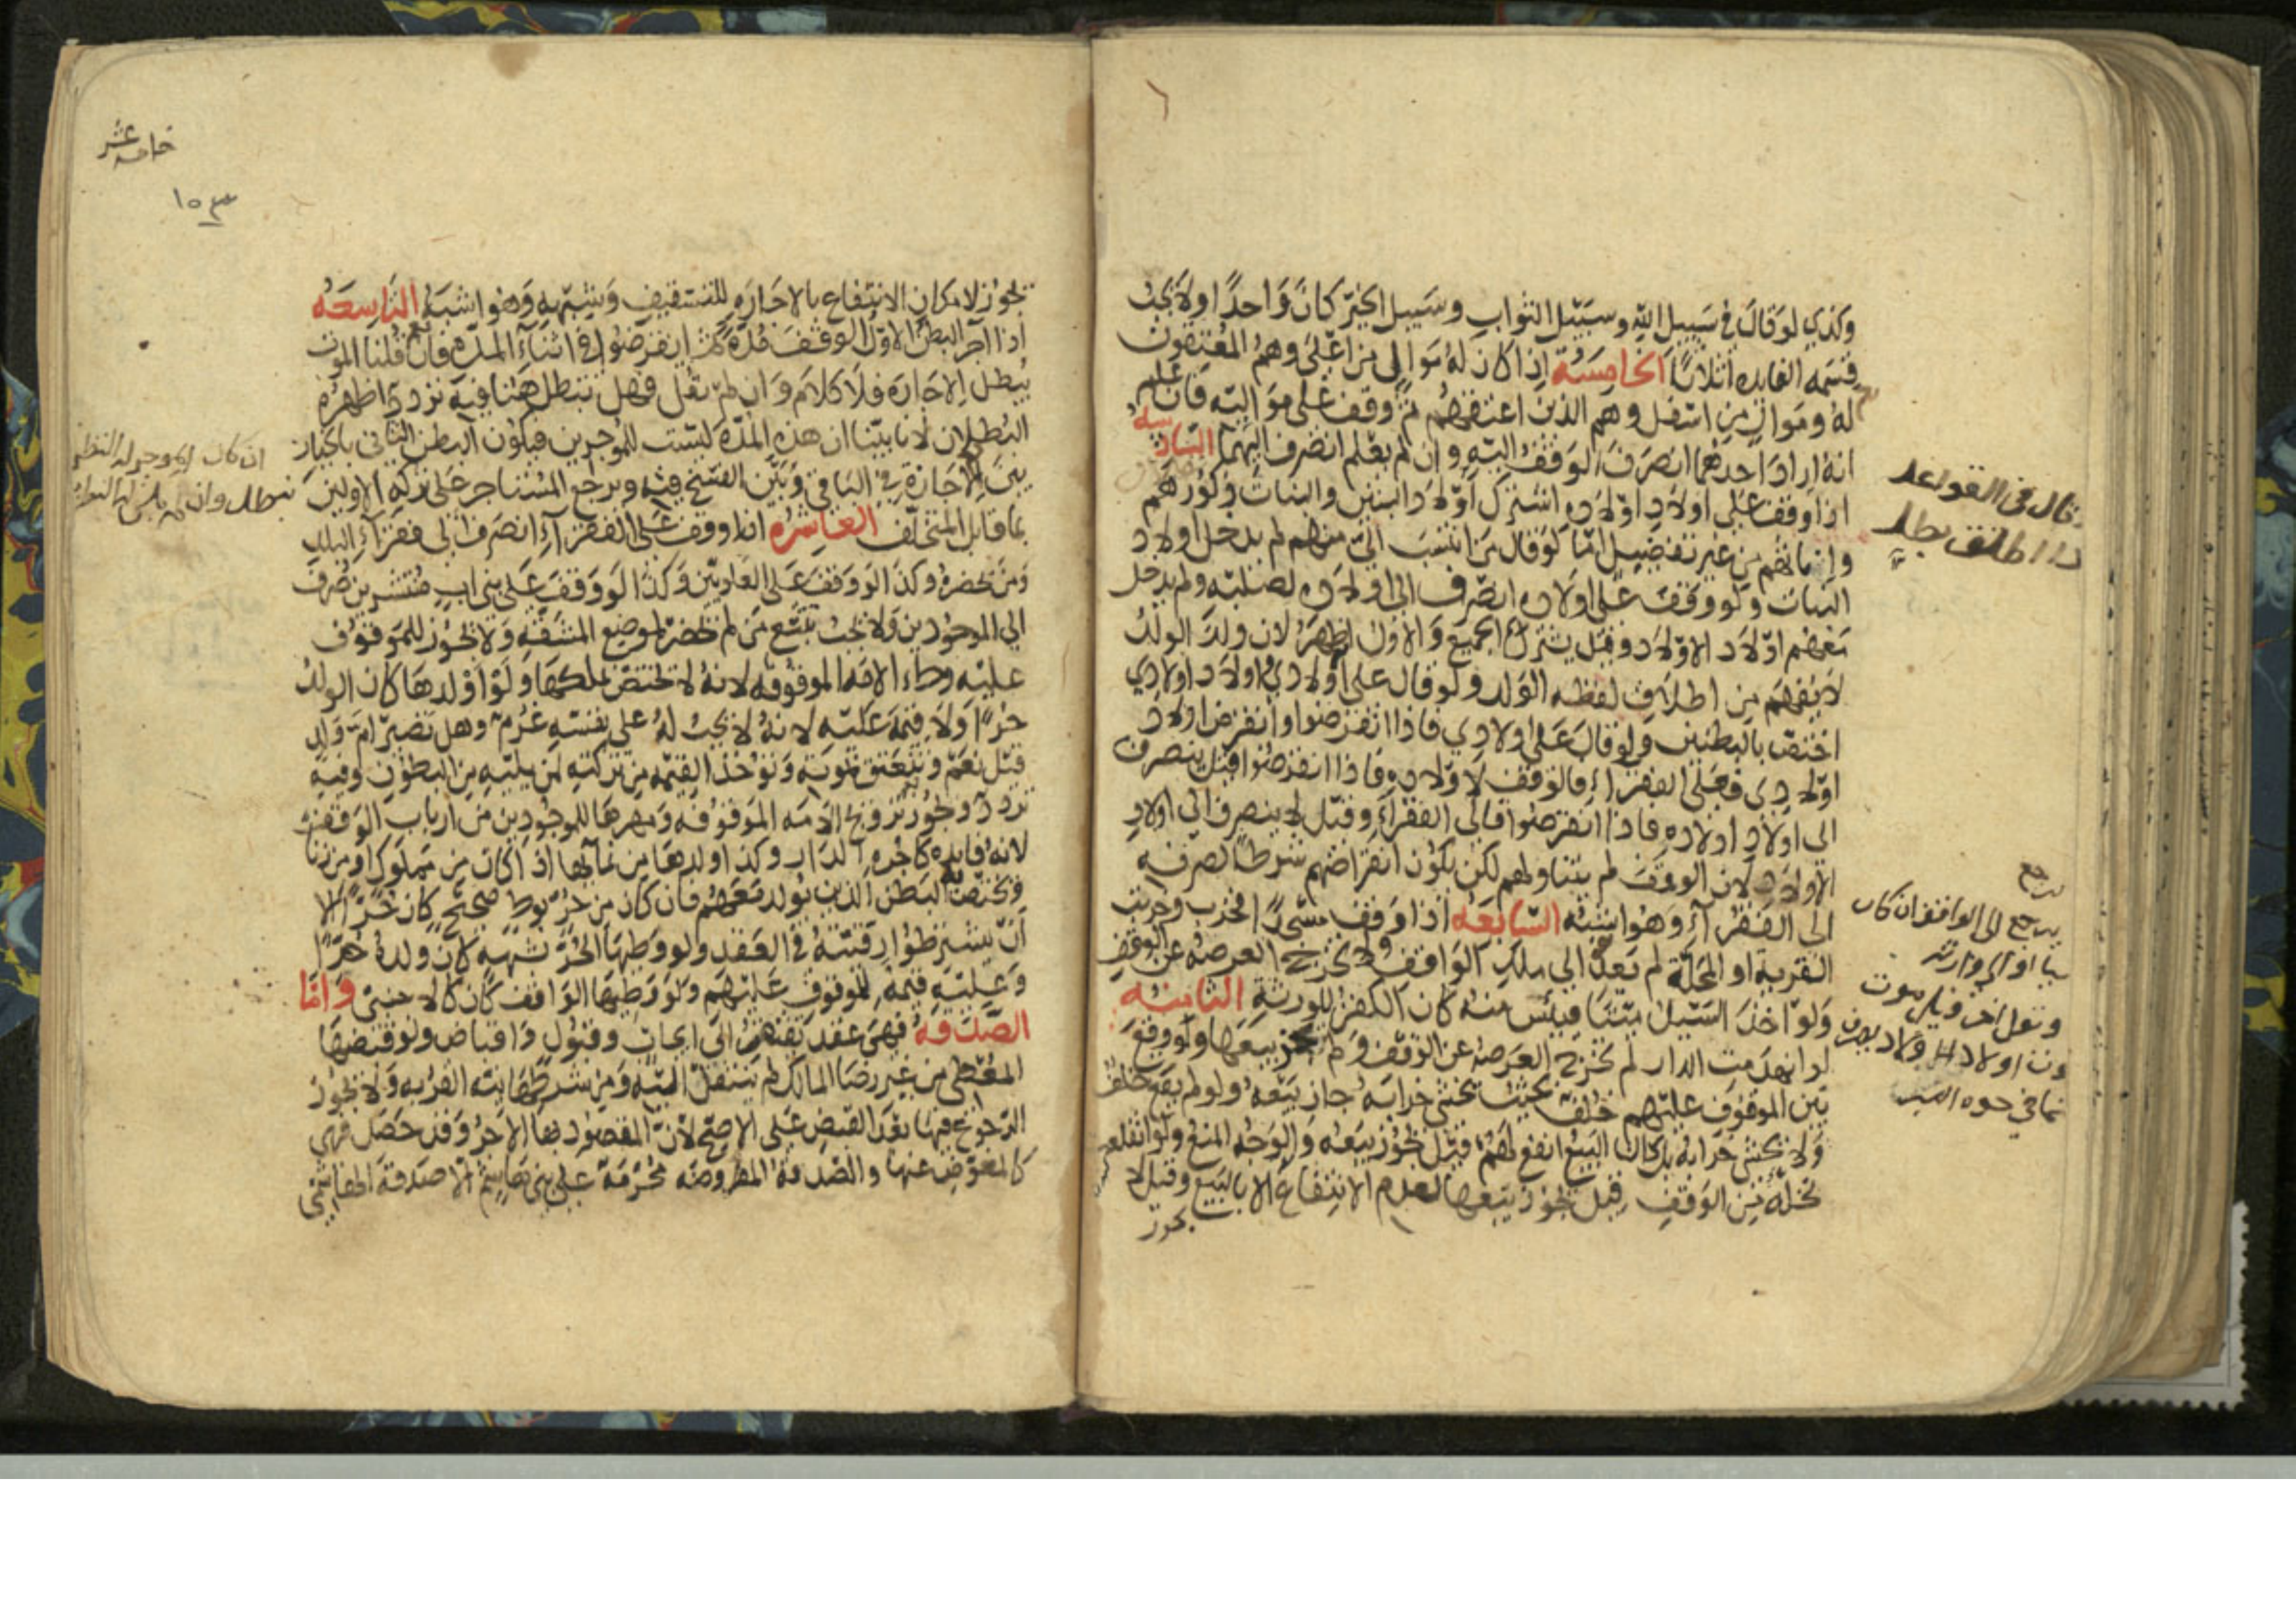 وكذي لو قال في سبيل الله وسبيل الثواب وسبيل الخير كان واحدا ولا يجب
قسمة الفايده اثلاثا الخامسة اذا كان له موالي من اعلى وهم المعتقون
له وموال من اسفل وهم الذين اعتقهم ثم وقف على مواليه فان علم
انه اراد احدهما انصرف الوقف اليه وان لم يعلم انصرف اليهما السادسه
اذا وقف على اولاد اولاده اشترك اولاد البنين والبنات ذكورهم
واناثهم من غير تفضيل اما لو قال من انتسب الي منهم لم يدخل اولاد
البنات ولو وقف على اولاده انصرف الى اولاده لصلبه ولم يدخل
معهم اولاد الاولاد وقيل يشترك الجميع والاول اظهر لان ولد الولد
لا يفهم من اطلاق لفظه الولد ولو قال على اولادي واولاد اولادي
اختص بالبطنين ولو قال على اولادي فاذا انقرضوا وانقرض اولاد
اولادي فعلى الفقراء فالوقف لاولاده فاذا انقرضوا قيل ينصرف
الى اولاد اولاده فاذا انقرضوا فالى الفقراء وقيل لا ينصرف الى اولاد
الاولاد لان الوقف لم يتناولهم لكن يكون انقراضهم شرطا لصرفه
الى الفقراء وهو اشبه السابعه اذا وقف مسجدا فخرب وخربت
القرية او المحلة لم يعد الى ملك الواقف ولا تخرج العرصه عن الوقف
ولو اخذ السيل ميتا فيئس منه كان الكفن للورثة الثامنه
لو انهدمت الدار لم تخرج العرصه عن الوقف ولم يجز بيعها ولو وقع
بين الموقوف عليهم خلف بحيث يخشى خرابه جاز بيعه ولو لم يقع خلف
ولا يخشى خرابه بل كان البيع انفع لهم قيل يجوز بيعه والوجه المنع ولو انقلعت
نخلة من الوقف قيل يجوز بيعها لعدم الانتفاع الا بالبيع وقيل لا
يجوز
قال في القواعد
اطلق بطل
يرجع
يرجع الى الواقف ان كان
او الى وارثه
خامسه عشر
١٥٣
يجوز لامكان الانتفاع بالاجاره للتسقيف وشبهه وهو اشبه التاسعه
اذا آجر البطن الاول الوقف مدة ثم انقرضوا في اثناء المده فان قلنا الموت
يبطل الاجاره فلا كلام وان لم نقل فهل تبطل هنا فيه تردد اظهره
البطلان لانا بينا ان هذه المدة ليست للموجرين فيكون البطن الثاني بالخيار
بين الاجازة في الباقي وبين الفسخ فيه ويرجع المستاجر على تركه الاولين
بما قابل المتخلف العاشره اذا وقف على الفقراء انصرف الى فقراء البلد
ومن يحضره وكذا لو وقف على العلويين وكذا لو وقف على بني اب منتشرين صرف
الى الموجودين ولا يجب تتبع من لم يحضر لموضع المشقه ولا يجوز للموقوف
عليه وطء الامه الموقوفه لانه لا يختص بملكها ولو اولدها كان الولد
حرا ولا قيمة عليه لانه لا يجب له على نفسه غرم وهل تصير ام ولد
قيل نعم وتنعتق بموته وتوخذ القيمه من تركته لمن يليه من البطون وفيه
تردد ويجوز تزويج الامه الموقوفه ومهرها للموجودين من ارباب الوقف
لانه فايده كاجره الدار وكذا ولدها من نمائها اذا كان من مملوك او من زنا
ويختص به البطن الذين يولد معهم فان كان من حر بوطء صحيح كان حرا الا
ان يشترطوا رقيته في العقد ولو وطيها الحر بشبهه كان ولده حرا
وعليه قيمته للموقوف عليهم ولو وطيها الواقف كان كالاجنبي واما
الصدقه فهي عقد يفتقر الى ايجاب وقبول واقباض ولو قبضها
المعطى من غير رضا المالك لم تنتقل اليه ومن شرطها نيه القربه ولا يجوز
الرجوع فيها بعد القبض على الاصح لان المقصود بها الاجر وقد حصل فهي
كالمعوض عنها والصدقة المفروضه محرمة على بني هاشم الا صدقة الهاشمي
ان كان